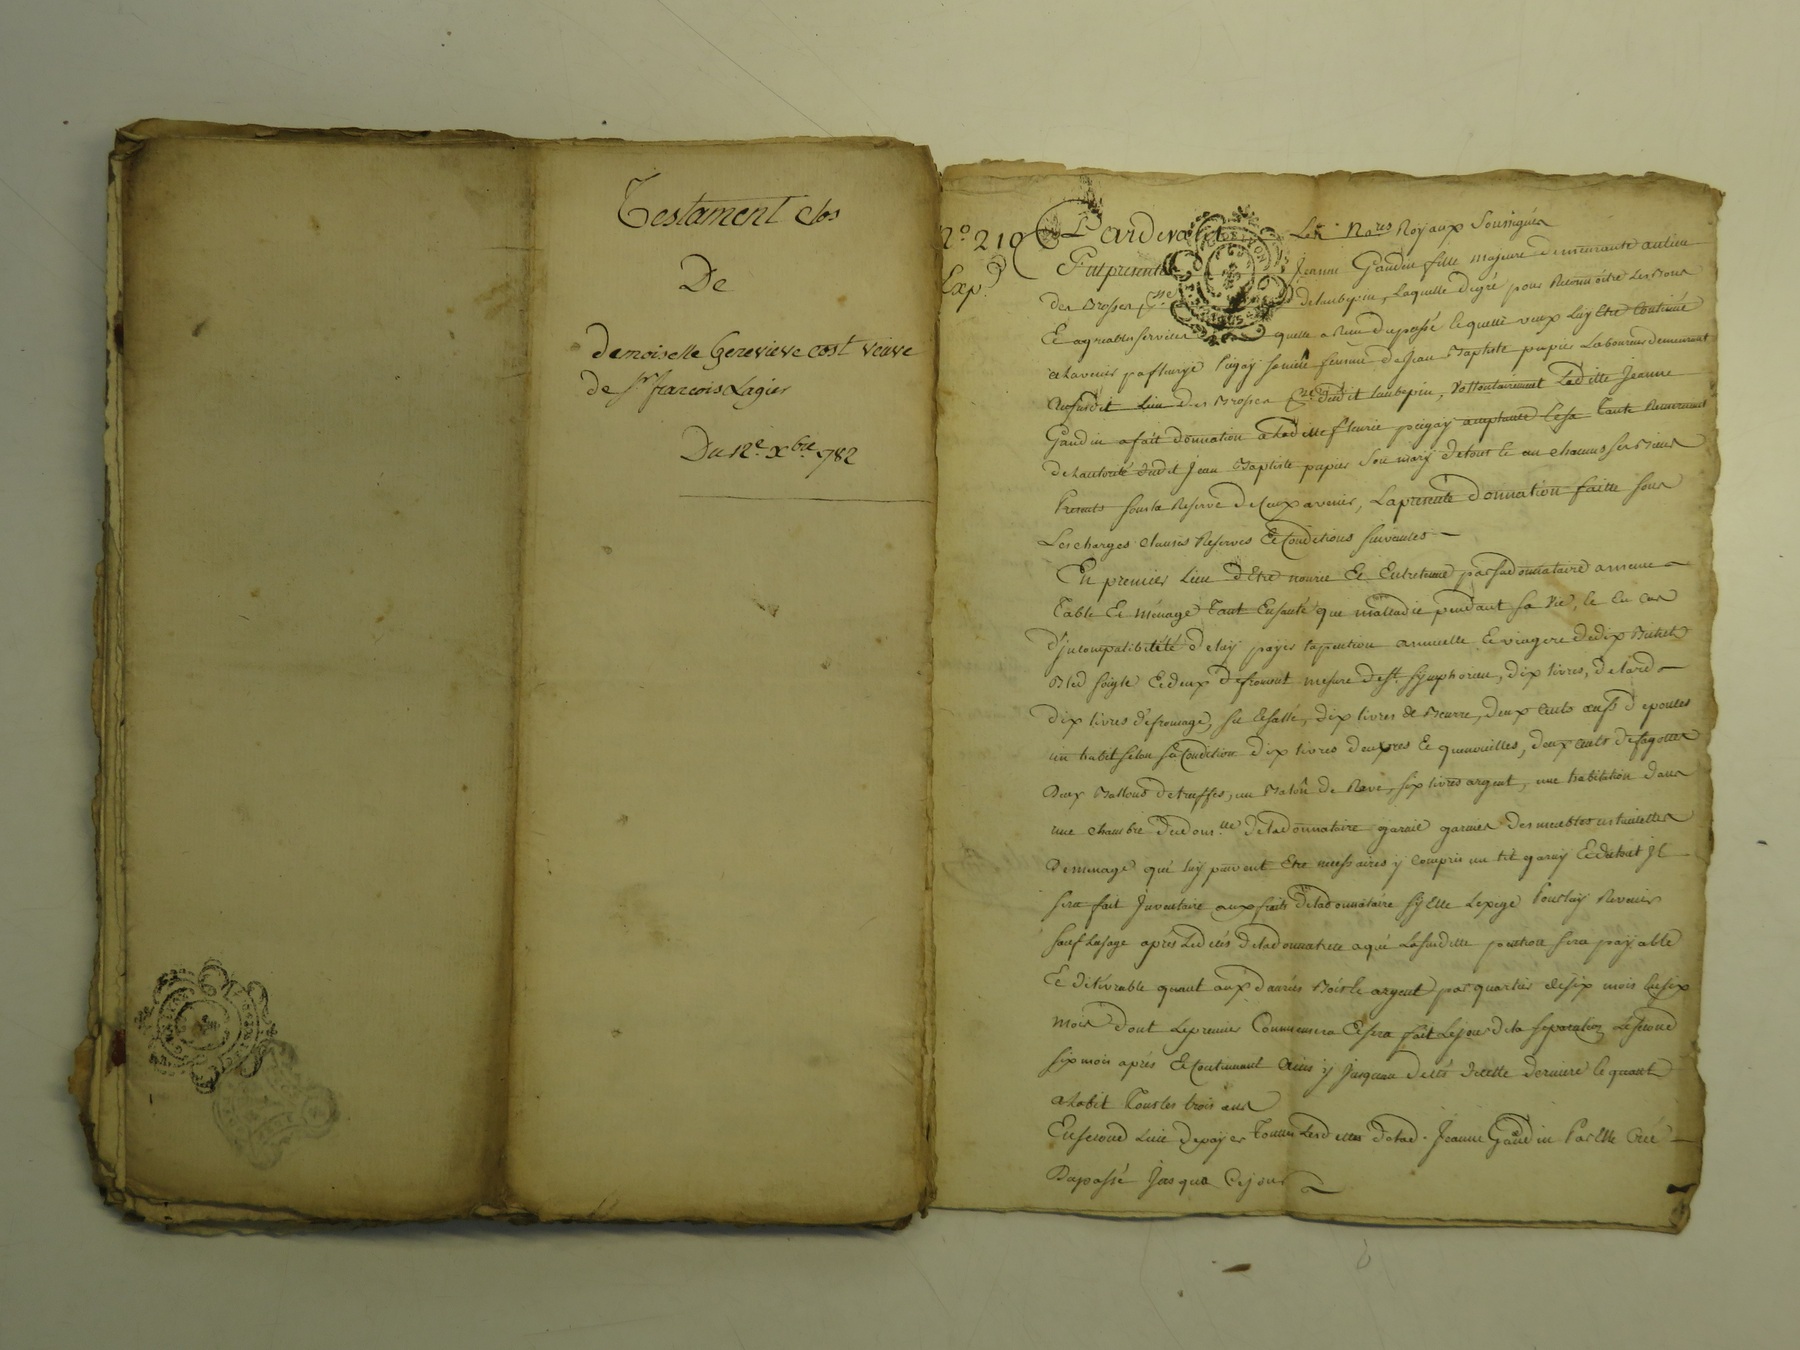 Testament Clos
De
demoiselle Genevieve Cost veuve
de Sr. francois Lagier
Du 12e. Xbre 782
No. 219 Pardevant Les Nores Royaux Sousignés
Exp.
Fut presente Jeanne Gaudin fille majeure demeurante au lieu
des Brosses psse de laubepin, Laquelle de gré pour Reconnoitre les Bons
Et agreables services quelle a Reçu du passé le quelle veux luy Etre Continué
a Lavenir pa fleurye pupier femme de Jean Baptiste papier Laboureur demeurant
Aususdit Lieu des Brosses psse dudit laubepin, vollontairement Laditte Jeanne
Gaudin a fait donnation a Laditte fleurie acceptante
de Lautorité dudit Jean Baptiste papier Son mary de tout le un chacuns ses Biens
Presents sous la Reserve de Ceux avenir, La presente donnation faitte sous
Les charges clauses Reserves Et Conditions suivantes
En premier Lieu d'Etre nourie Et Entretenue par sa donnataire a meme
Table Et menage Tant En santé que malladie pendant sa vie, le En cas
d'Jncompatibilité de luy payer la pention annuelle Et viagere de dix Bichets
Bled soigle Et deux de froment mesure de St. Symphorien, dix livres, de lard
dix livres de fromage, sec Et sallé, dix livres de Beurre, deux Cents œufs de poulles
un habit selon sa Condition dix livres d'euvres Et quenouilles, deux cents de fagottes
Deux Ballons de truffes, un Balon de Rave, six livres argent, une habitation dans
une chambre du dom.lle de la donnataire garnie des meubles ustancilles
de menage qui luy peuvent Etre necessaires y compris un lit garny Et du tout Jl
sera fait Jnventaire aux fraits de la donnataire sy Elle Lexige Pour luy Revenir
sauf Lusage après Le decés de la donnatrice a qui La susditte pention sera payable
Et délivrable quant aux danrées Bois le argent par quartier de six mois En six
mois dont Le premier Commencera Et sera fait Le jour de la separation Le second
six mois après Et Continuant ainsi y Jusquau decés dicelle derniere le quant
a Labit Tous les trois ans
En second Lieu de payer Toutes Les dettes de lad. Jeanne Gaudin Par Elle Créé
Du passé Jusqua Ce jour